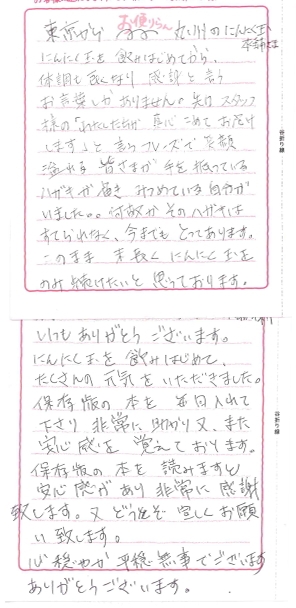 お便りらん
東京から 九州のにんにく玉
本舗さま
にんにく玉を飲みはじめてから、
体調も良くなり 感謝と言う
お言葉しかありません。先日 スタッフ
様の「わたしたちが 真心こめてお届け
します」と言うフレーズで 笑顔
溢れる 皆さまが 手を振っている
ハガキが届き みつめている自分が
いました。。何故か そのハガキは
すてられなく、今までも とってあります。
このまま 末長く にんにく玉を
のみ続けたいと 思っております。
谷折り線
いつもありがとう ございます。
にんにく玉を飲みはじめて、
たくさんの元気をいただきました。
保存版の本を 毎日入れて
下さり 非常に助かり又、また
安心感を 覚えております。
保存版の本を 読みますと
安心感があり 非常に 感謝
致します。又どうぞ 宜しくお願
い致します。
心穏やか 平穏無事でございます
ありがとうございます。
谷折り線